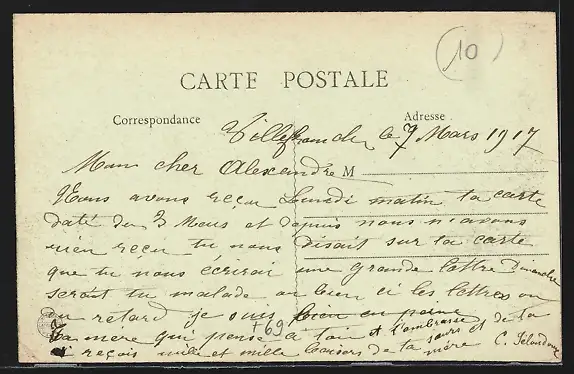 10
CARTE POSTALE
Correspondance
Adresse
Villefranche le 7 Mars 1917
Mon cher Alexandre M
Nous avons reçu Lundi matin ta carte
daté du 3 Mars et depuis nous n'avons
rien reçu tu nous disait sur ta carte
que tu nous écrirai une grande lettre Dimanche
serait tu malade ou bien si les lettres on
du retard je suis bien en peine
Ta mere qui pense a toi et t'embrasse
+69
reçois mille et mille baisers de ta soeur et de ta
mère C.